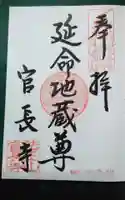 奉拝
延命地蔵尊
官長寺